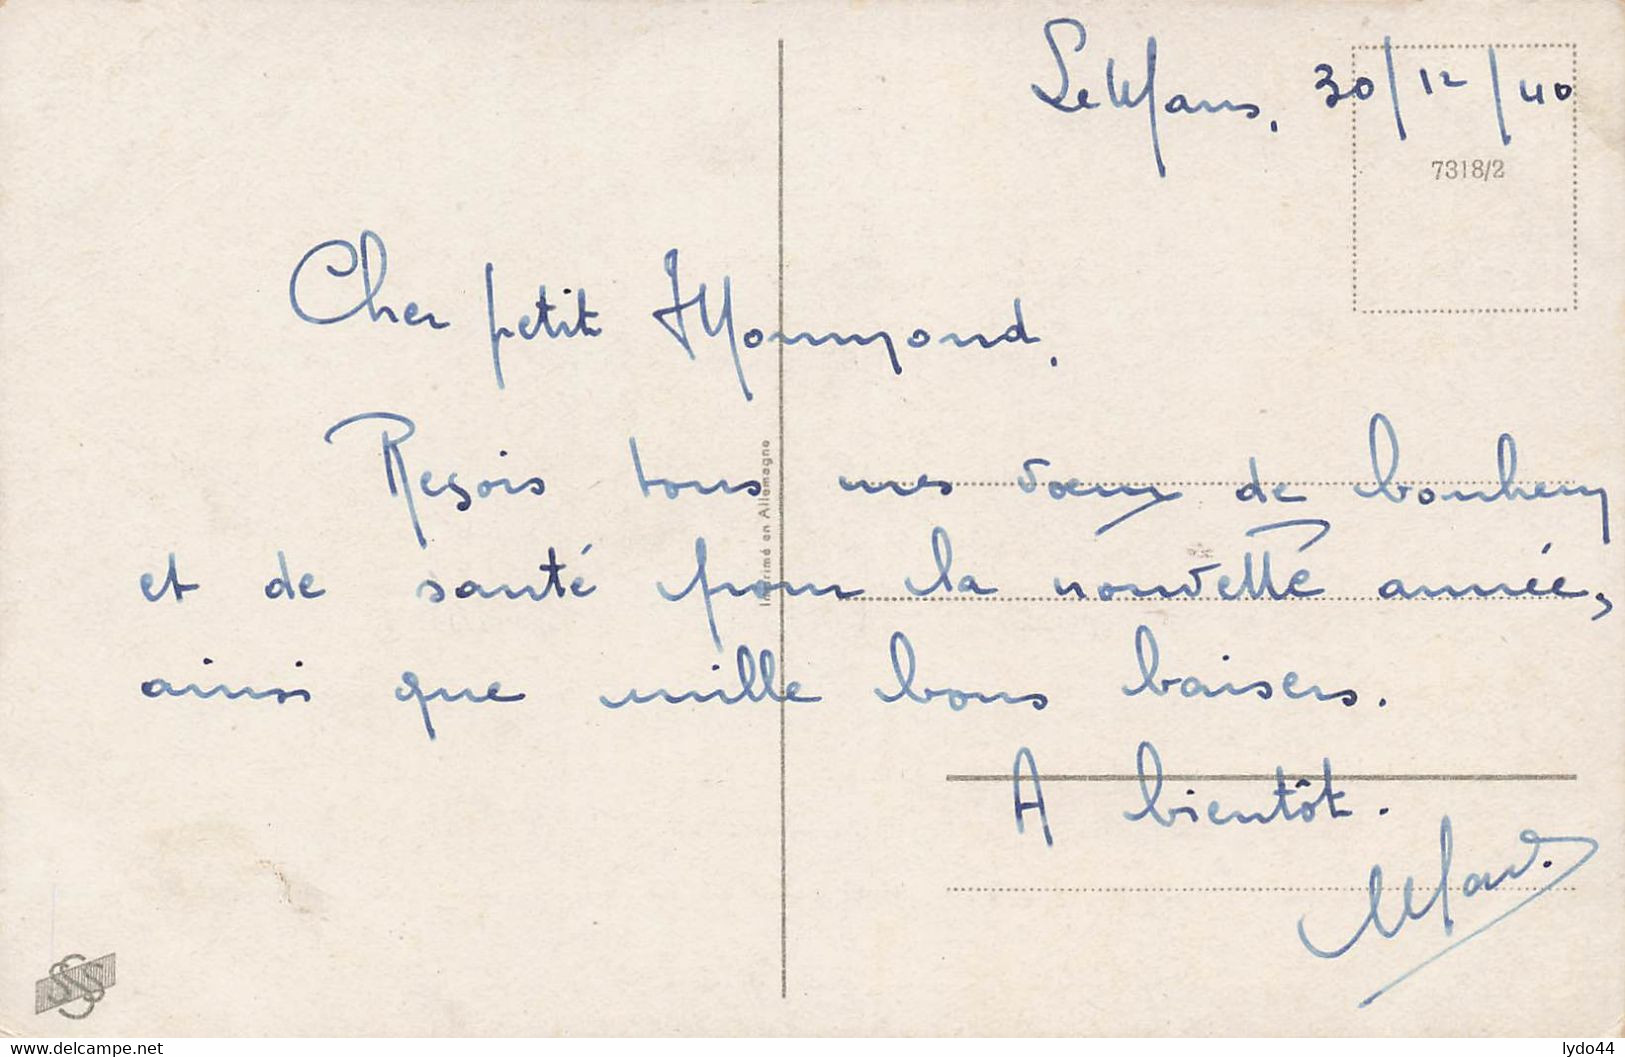 Le Mans, 30/12/40
7318/2
Cher petit
Reçois tous mes vœux de bonheur
et de santé pour la nouvelle année,
ainsi que mille bons baisers.
A bientôt.
Imprimé en Allemagne
lydo44
delcampe.net